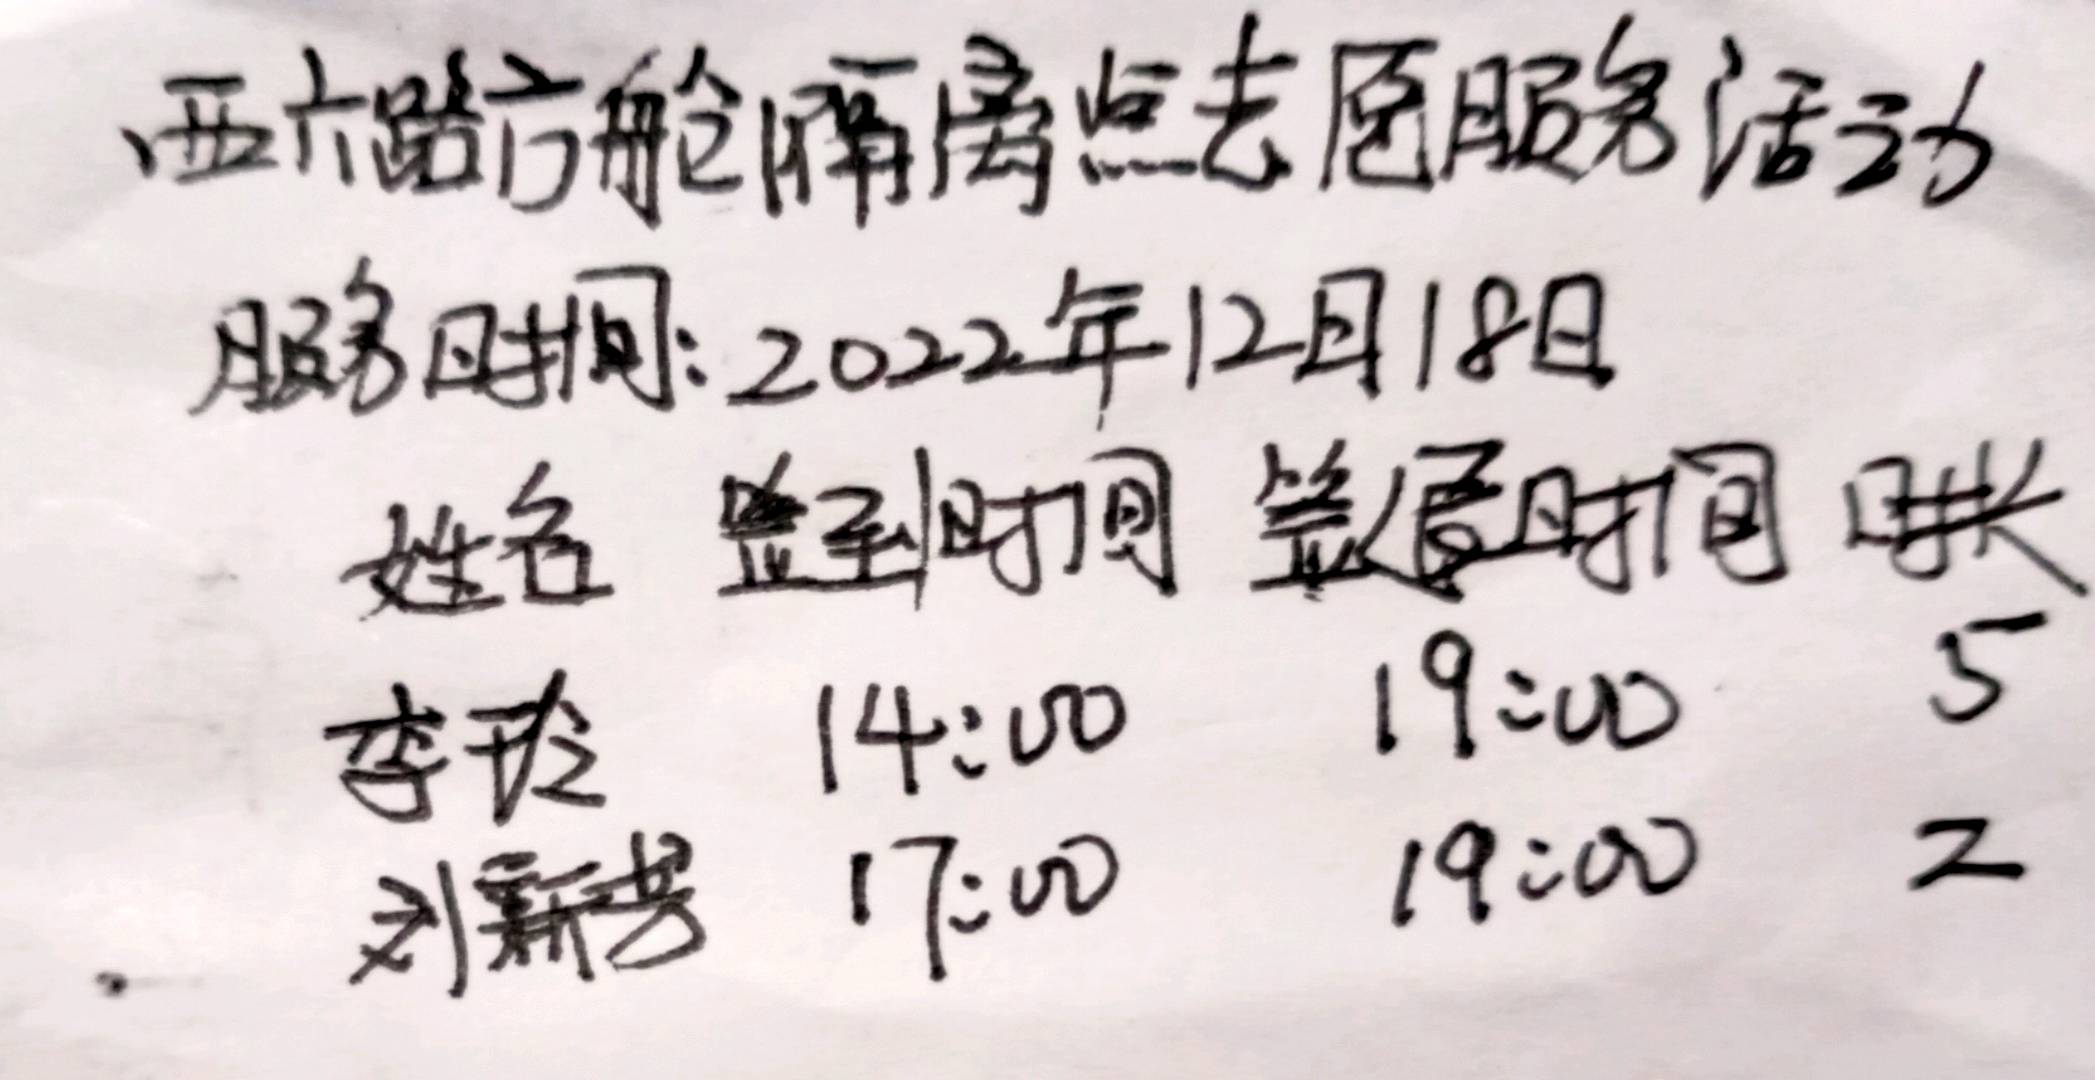 西六路方舱隔离点志愿服务活动
服务时间:2022年12月18日
姓名 签到时间 签退时间 时长
李玲 14:00 19:00 5
刘新芳 17:00 19:00 2